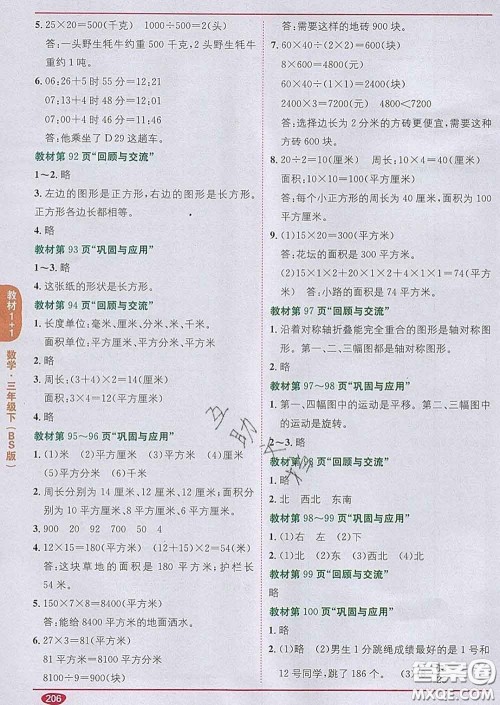 5. 25×20=500(千克)  1000÷500=2(头)
答:一头野生牦牛约重 500 千克, 2 头野生牦牛
重约 1 吨。
6. 06:26+5 时 55 分=12:21
07:13+4 时 58 分=12:11
07:01+4 时 45 分=11:46
答:他乘坐了 D29 这趟车。
教材第 92 页“回顾与交流”
1~2. 略
3. 左边的图形是正方形,右边的图形是长方形。
正方形各边长都相等。
4. 略
教材第 93 页“巩固与应用”
1~3. 略
4. 这张纸的形状是长方形。
教材第 94 页“回顾与交流”
1. 长度单位:毫米、厘米、分米、米、千米。
面积单位:平方厘米、平方分米、平方米
2. 略
3. 周长:(3+4)×2=14(厘米)
面积:3×4=12(平方厘米)
4. 略
教材第 95~96 页“巩固与应用”
1. (1)米 (2)平方厘米 (3)平方米 (4)厘米
(5)平方分米 (6)千米
2. 周长分别为 14 厘米、12 厘米、12 厘米;面积分
别为 10 平方厘米、9 平方厘米、5 平方厘米。
3. 900 20 92 750 50 4
4. 12×15=180(平方米) (12+15)×2=54(米)
答:这块草地的面积是 180 平方米;护栏长
54 米。
5. 150×7×8=8400(平方米)
答:能给 8400 平方米的地面洒水。
6. 27×3=81(平方米)
81 平方米=8100 平方分米
8100÷9=900(块)
206
教材1+1
数学·三年级下(BS版)
答:需要这样的地砖 900 块。
7. 60×40÷(2×2)=600(块)
8×600=4800(元)
60×40÷(1×1)=2400(块)
2400×3=7200(元) 4800<7200
答:选择边长为 2 分米的方砖更便宜,需要方
砖 600 块。
8. 20÷2=10(厘米) 周长:10×4=40(厘米)
面积:10×10=100(平方厘米)
答:每个小正方形的周长为 40 厘米,面积为
100 平方厘米。
9. (1)15×20=300(平方米)
答:花坛的面积是 300 平方米。
(2)15×1×2+20×1×2+1×1×4=74(平
方米) 答:小路的面积是 74 平方米。
教材第 97 页“回顾与交流”
1. 沿着对称轴折叠能完全重合的图形是轴对称图
形。第一、二、三幅图都是轴对称图形。
2. 略
教材第 97~98 页“巩固与应用”
1. 第一、四幅图中的运动是平移。第二、三幅图中
的运动是旋转。
2~3. 略
教材第 98 页“回顾与交流”
1. 略
2. 北 西北 东南
教材第 98~99 页“巩固与应用”
1. (1)右 左 (2)下
2. (1)北 (2)东 (3)西北 (4)北
教材第 99 页“回顾与交流”
略
教材第 100 页“巩固与应用”
1. 略
2. (1)略 (2)男生 1 分跳绳成绩最好的是 1 号和
12 号同学,跳了 186 个。
互助文档
答案圈
MXQE.COM